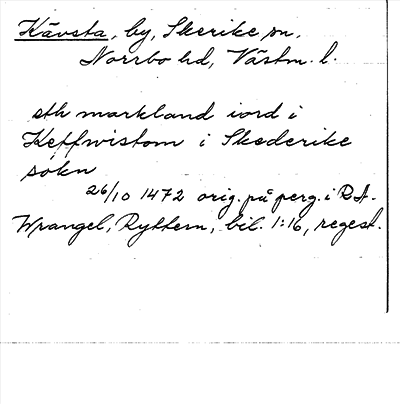 Kävsta, by, Skerike sn.
Norrbo hd, Västm. l.
eth markland iord i
Keffwistom i Skederike
sokn
26/10 1472 orig. på perg. i RA.
Wrangel, Ryttern, bil. 1:16, regest.